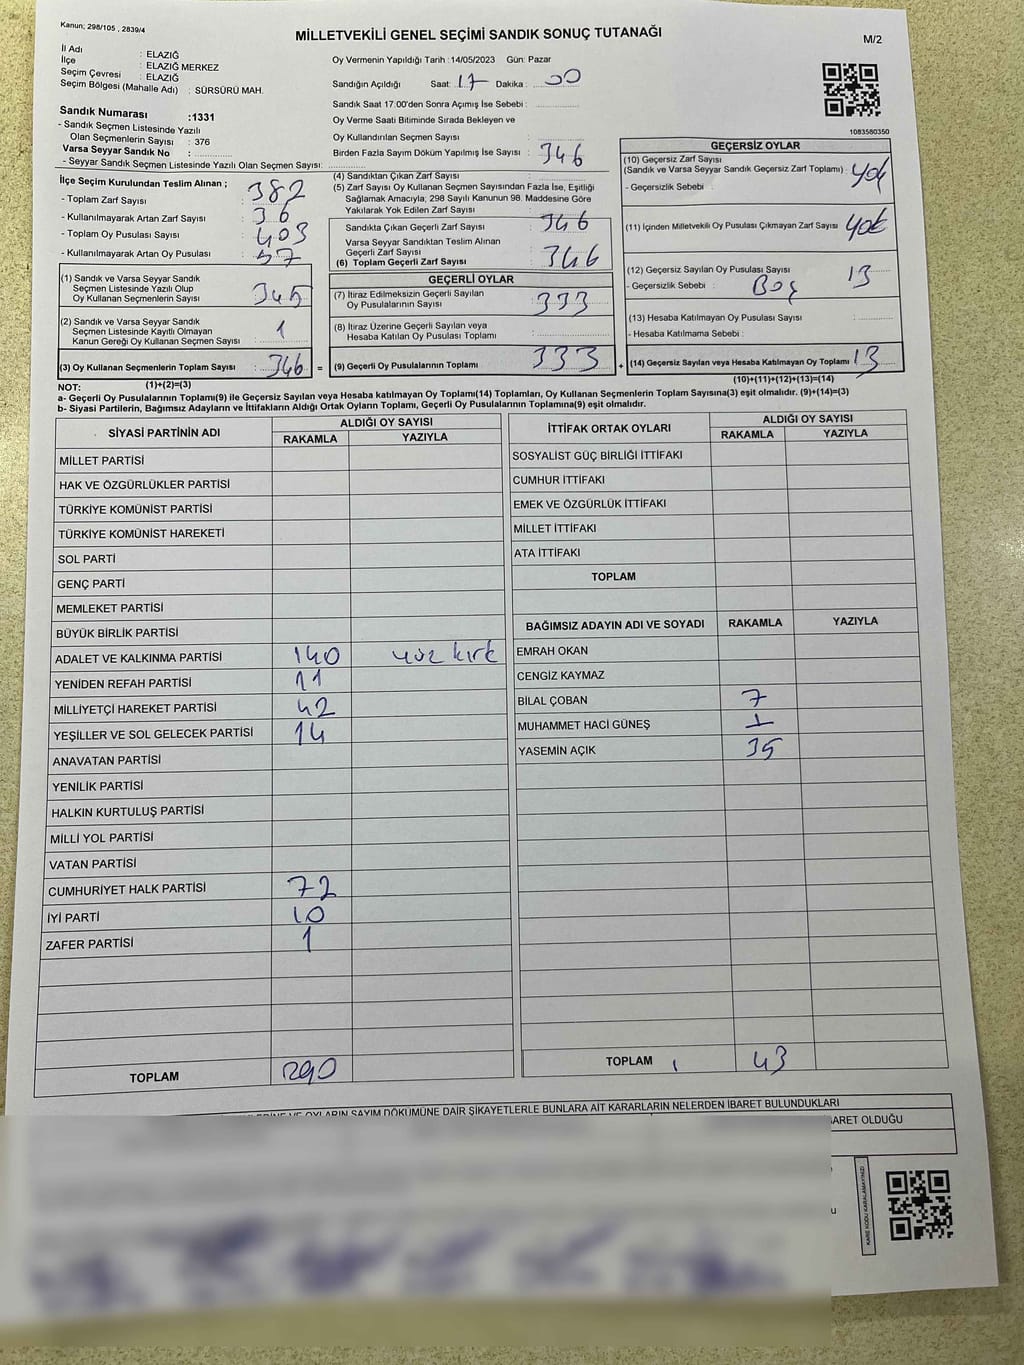 Kanun; 298/105 , 2839/4
MİLLETVEKİLİ GENEL SEÇİMİ SANDIK SONUÇ TUTANAĞI
M/2
İl Adı : ELAZIĞ
İlçe : ELAZIĞ MERKEZ
Seçim Çevresi : ELAZIĞ
Seçim Bölgesi (Mahalle Adı) : SÜRSÜRÜ MAH.
Sandık Numarası :1331
- Sandık Seçmen Listesinde Yazılı
Olan Seçmenlerin Sayısı : 376
Varsa Seyyar Sandık No :
- Seyyar Sandık Seçmen Listesinde Yazılı Olan Seçmen Sayısı:
Oy Vermenin Yapıldığı Tarih :14/05/2023 Gün: Pazar
Sandığın Açıldığı Saat: 17 Dakika : 00
Sandık Saat 17:00'den Sonra Açımış İse Sebebi :
Oy Verme Saati Bitiminde Sırada Bekleyen ve
Oy Kullandırılan Seçmen Sayısı :
Birden Fazla Sayım Döküm Yapılmış İse Sayısı : 346
1083580350
İlçe Seçim Kurulundan Teslim Alınan ;
- Toplam Zarf Sayısı : 382
- Kullanılmayarak Artan Zarf Sayısı : 36
- Toplam Oy Pusulası Sayısı : 403
- Kullanılmayarak Artan Oy Pusulası : 57
(1) Sandık ve Varsa Seyyar Sandık
Seçmen Listesinde Yazılı Olup
Oy Kullanan Seçmenlerin Sayısı : 345
(2) Sandık ve Varsa Seyyar Sandık
Seçmen Listesinde Kayıtlı Olmayan
Kanun Gereği Oy Kullanan Seçmen Sayısı : 1
(3) Oy Kullanan Seçmenlerin Toplam Sayısı : 346 =
(4) Sandıktan Çıkan Zarf Sayısı :
(5) Zarf Sayısı Oy Kullanan Seçmen Sayısından Fazla İse, Eşitliği
Sağlamak Amacıyla, 298 Sayılı Kanunun 98. Maddesine Göre
Yakılarak Yok Edilen Zarf Sayısı :
Sandıkta Çıkan Geçerli Zarf Sayısı : 346
Varsa Seyyar Sandıktan Teslim Alınan
Geçerli Zarf Sayısı :
(6) Toplam Geçerli Zarf Sayısı : 346
GEÇERLİ OYLAR
(7) İtiraz Edilmeksizin Geçerli Sayılan
Oy Pusulalarının Sayısı : 333
(8) İtiraz Üzerine Geçerli Sayılan veya
Hesaba Katılan Oy Pusulası Toplamı :
(9) Geçerli Oy Pusulalarının Toplamı : 333 +
GEÇERSİZ OYLAR
(10) Geçersiz Zarf Sayısı
(Sandık ve Varsa Seyyar Sandık Geçersiz Zarf Toplamı) : yok
- Geçersizlik Sebebi :
(11) İçinden Milletvekili Oy Pusulası Çıkmayan Zarf Sayısı : yok
(12) Geçersiz Sayılan Oy Pusulası Sayısı : 13
- Geçersizlik Sebebi : Boş
(13) Hesaba Katılmayan Oy Pusulası Sayısı :
- Hesaba Katılmama Sebebi :
(14) Geçersiz Sayılan veya Hesaba Katılmayan Oy Toplamı : 13
NOT: (1)+(2)=(3)
(10)+(11)+(12)+(13)=(14)
a- Geçerli Oy Pusulalarının Toplamı(9) ile Geçersiz Sayılan veya Hesaba Katılmayan Oy Toplamı(14) Toplamları, Oy Kullanan Seçmenlerin Toplam Sayısına(3) eşit olmalıdır. (9)+(14)=(3)
b- Siyasi Partilerin, Bağımsız Adayların ve İttifakların Aldığı Ortak Oyların Toplamı, Geçerli Oy Pusulalarının Toplamına(9) eşit olmalıdır.
SİYASİ PARTİNİN ADI ALDIĞI OY SAYISI
RAKAMLA YAZIYLA
MİLLET PARTİSİ
HAK VE ÖZGÜRLÜKLER PARTİSİ
TÜRKİYE KOMÜNİST PARTİSİ
TÜRKİYE KOMÜNİST HAREKETİ
SOL PARTİ
GENÇ PARTİ
MEMLEKET PARTİSİ
BÜYÜK BİRLİK PARTİSİ
ADALET VE KALKINMA PARTİSİ 140 yüz kırk
YENİDEN REFAH PARTİSİ 11
MİLLİYETÇİ HAREKET PARTİSİ 42
YEŞİLLER VE SOL GELECEK PARTİSİ 14
ANAVATAN PARTİSİ
YENİLİK PARTİSİ
HALKIN KURTULUŞ PARTİSİ
MİLLİ YOL PARTİSİ
VATAN PARTİSİ
CUMHURİYET HALK PARTİSİ 72
İYİ PARTİ 10
ZAFER PARTİSİ 1
TOPLAM 290
İTTİFAK ORTAK OYLARI ALDIĞI OY SAYISI
RAKAMLA YAZIYLA
SOSYALİST GÜÇ BİRLİĞİ İTTİFAKI
CUMHUR İTTİFAKI
EMEK VE ÖZGÜRLÜK İTTİFAKI
MİLLET İTTİFAKI
ATA İTTİFAKI
TOPLAM
BAĞIMSIZ ADAYIN ADI VE SOYADI RAKAMLA YAZIYLA
EMRAH OKAN
CENGİZ KAYMAZ
BİLAL ÇOBAN 7
MUHAMMET HACİ GÜNEŞ 1
YASEMİN AÇIK 35
TOPLAM 43
VE OYLARIN SAYIM DÖKÜMÜNE DAİR ŞİKAYETLERLE BUNLARA AİT KARARLARIN NELERDEN İBARET BULUNDUKLARI
OLDUĞU
KARE KODU KARALAMAYINIZ!